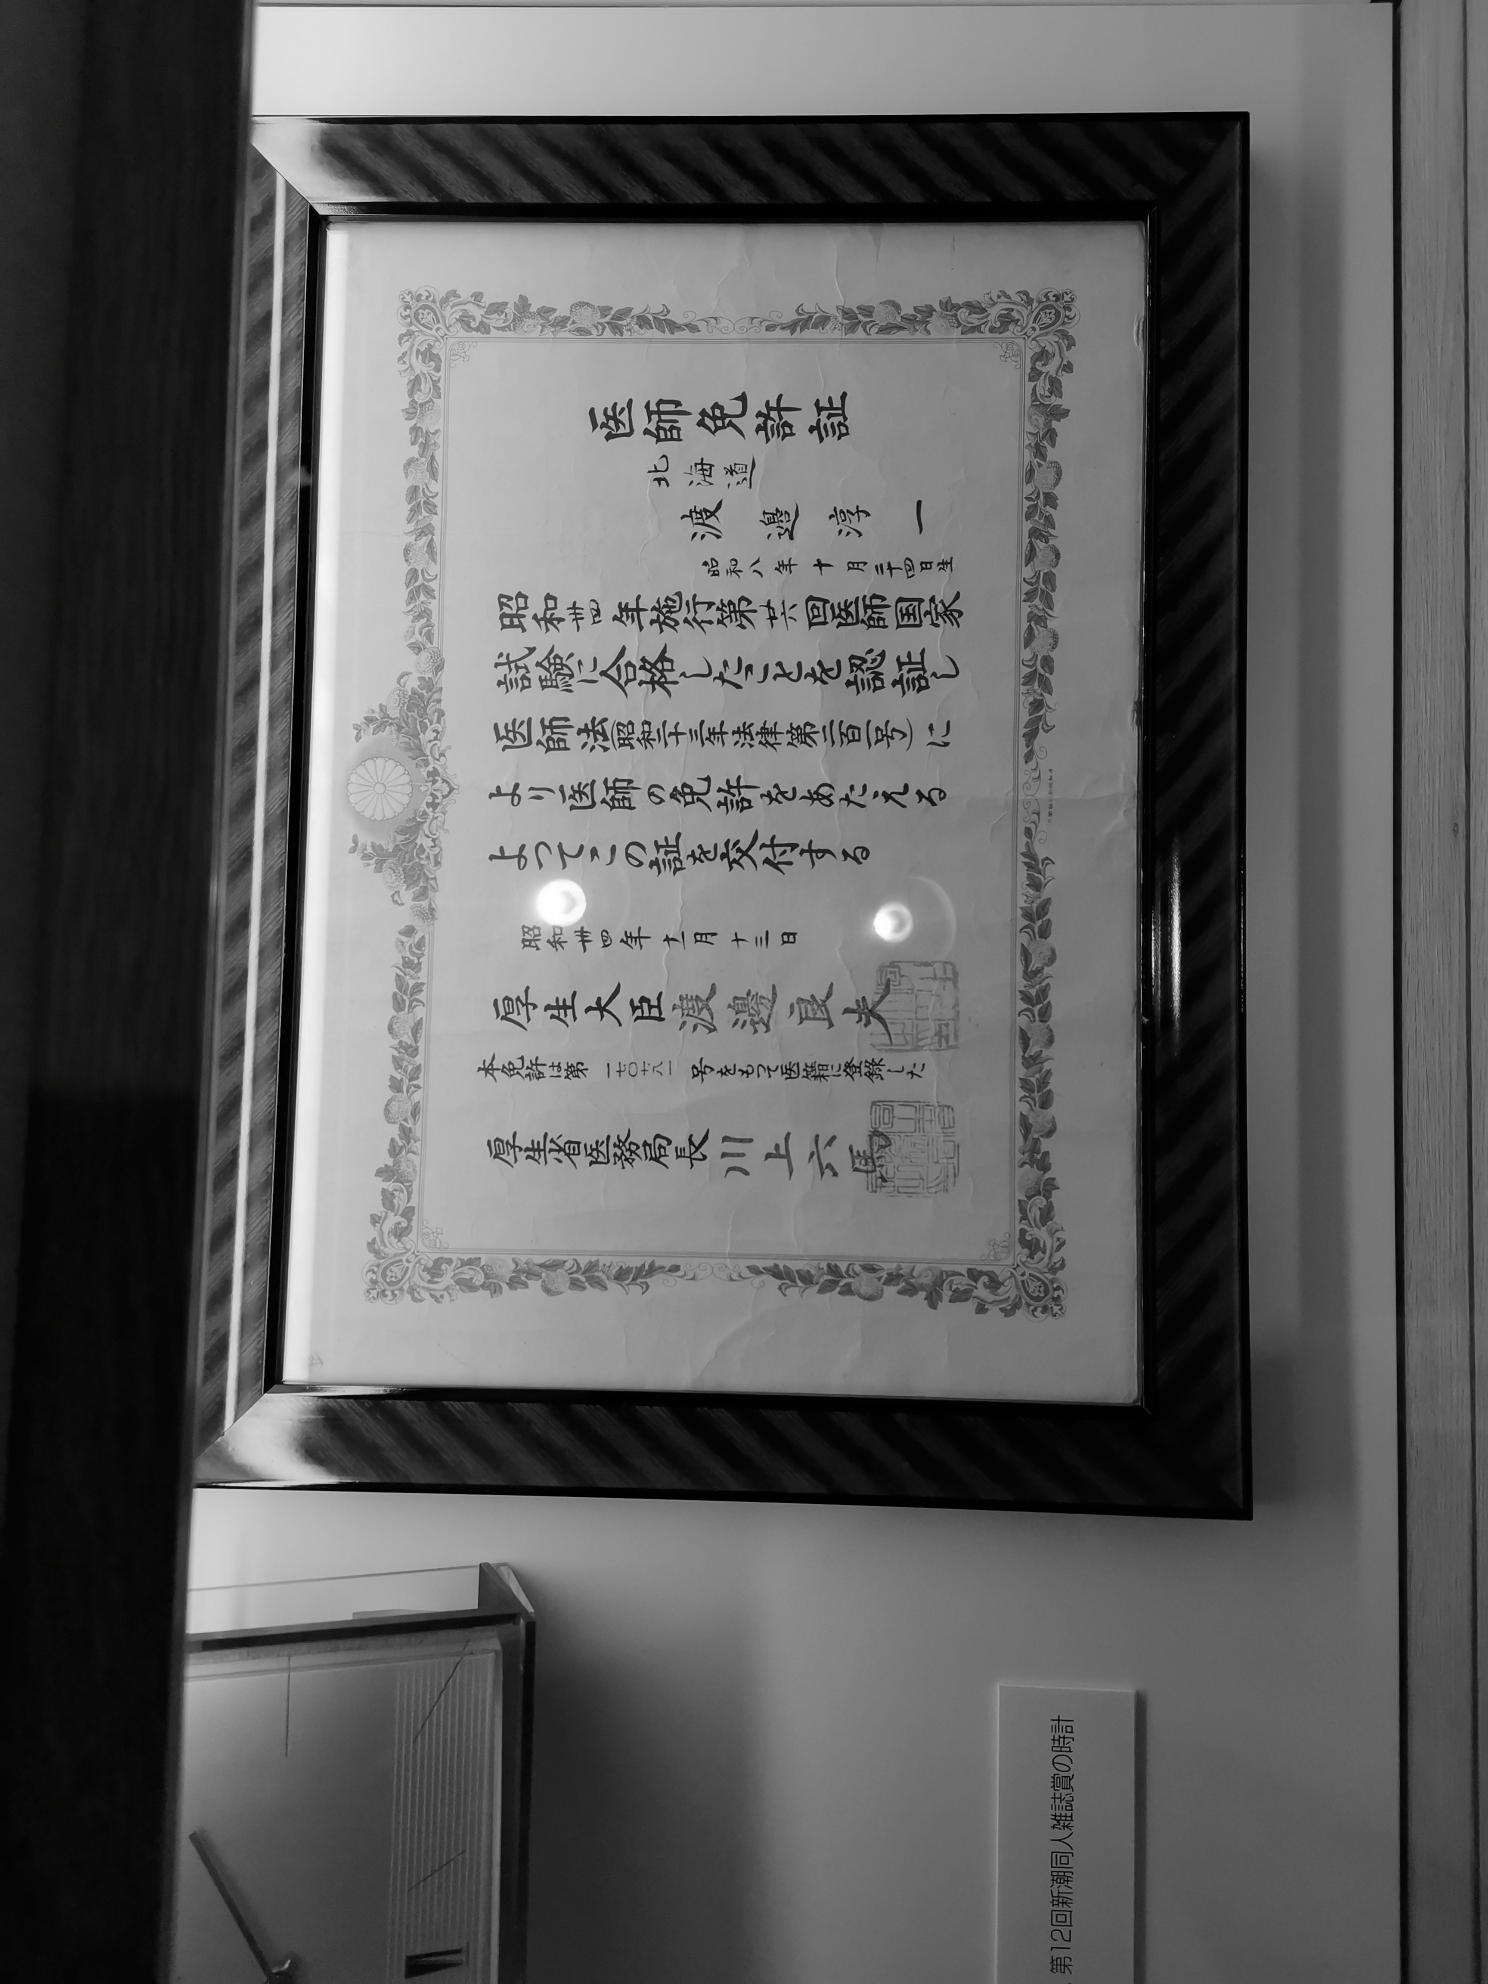 医師免許証
北海道
渡邊淳一
昭和八年十月二十四日生
昭和卅四年施行第廿六回医師国家
試験に合格したことを認証し
医師法(昭和二十三年法律第二百一号)に
より医師の免許をあたえる
よつてこの証を交付する
昭和卅四年十二月十三日
厚生大臣渡邊良夫
本免許は第一七〇七八一号をもつて医籍に登録した
厚生省医務局長川上六馬
第12回新潮同人雑誌賞の時計